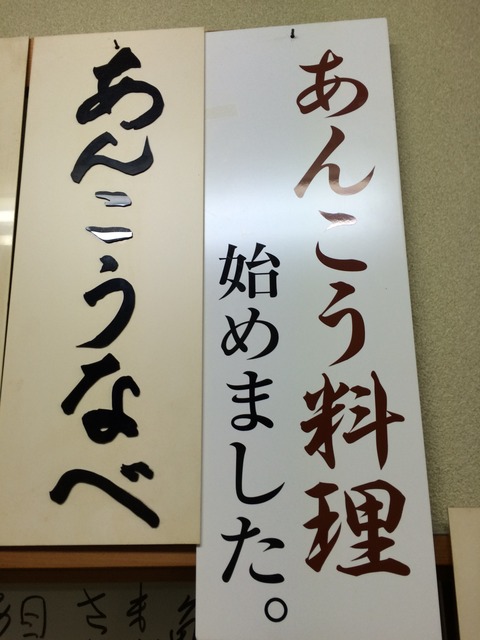 あんこう料理
始めました。
あんこうなべ